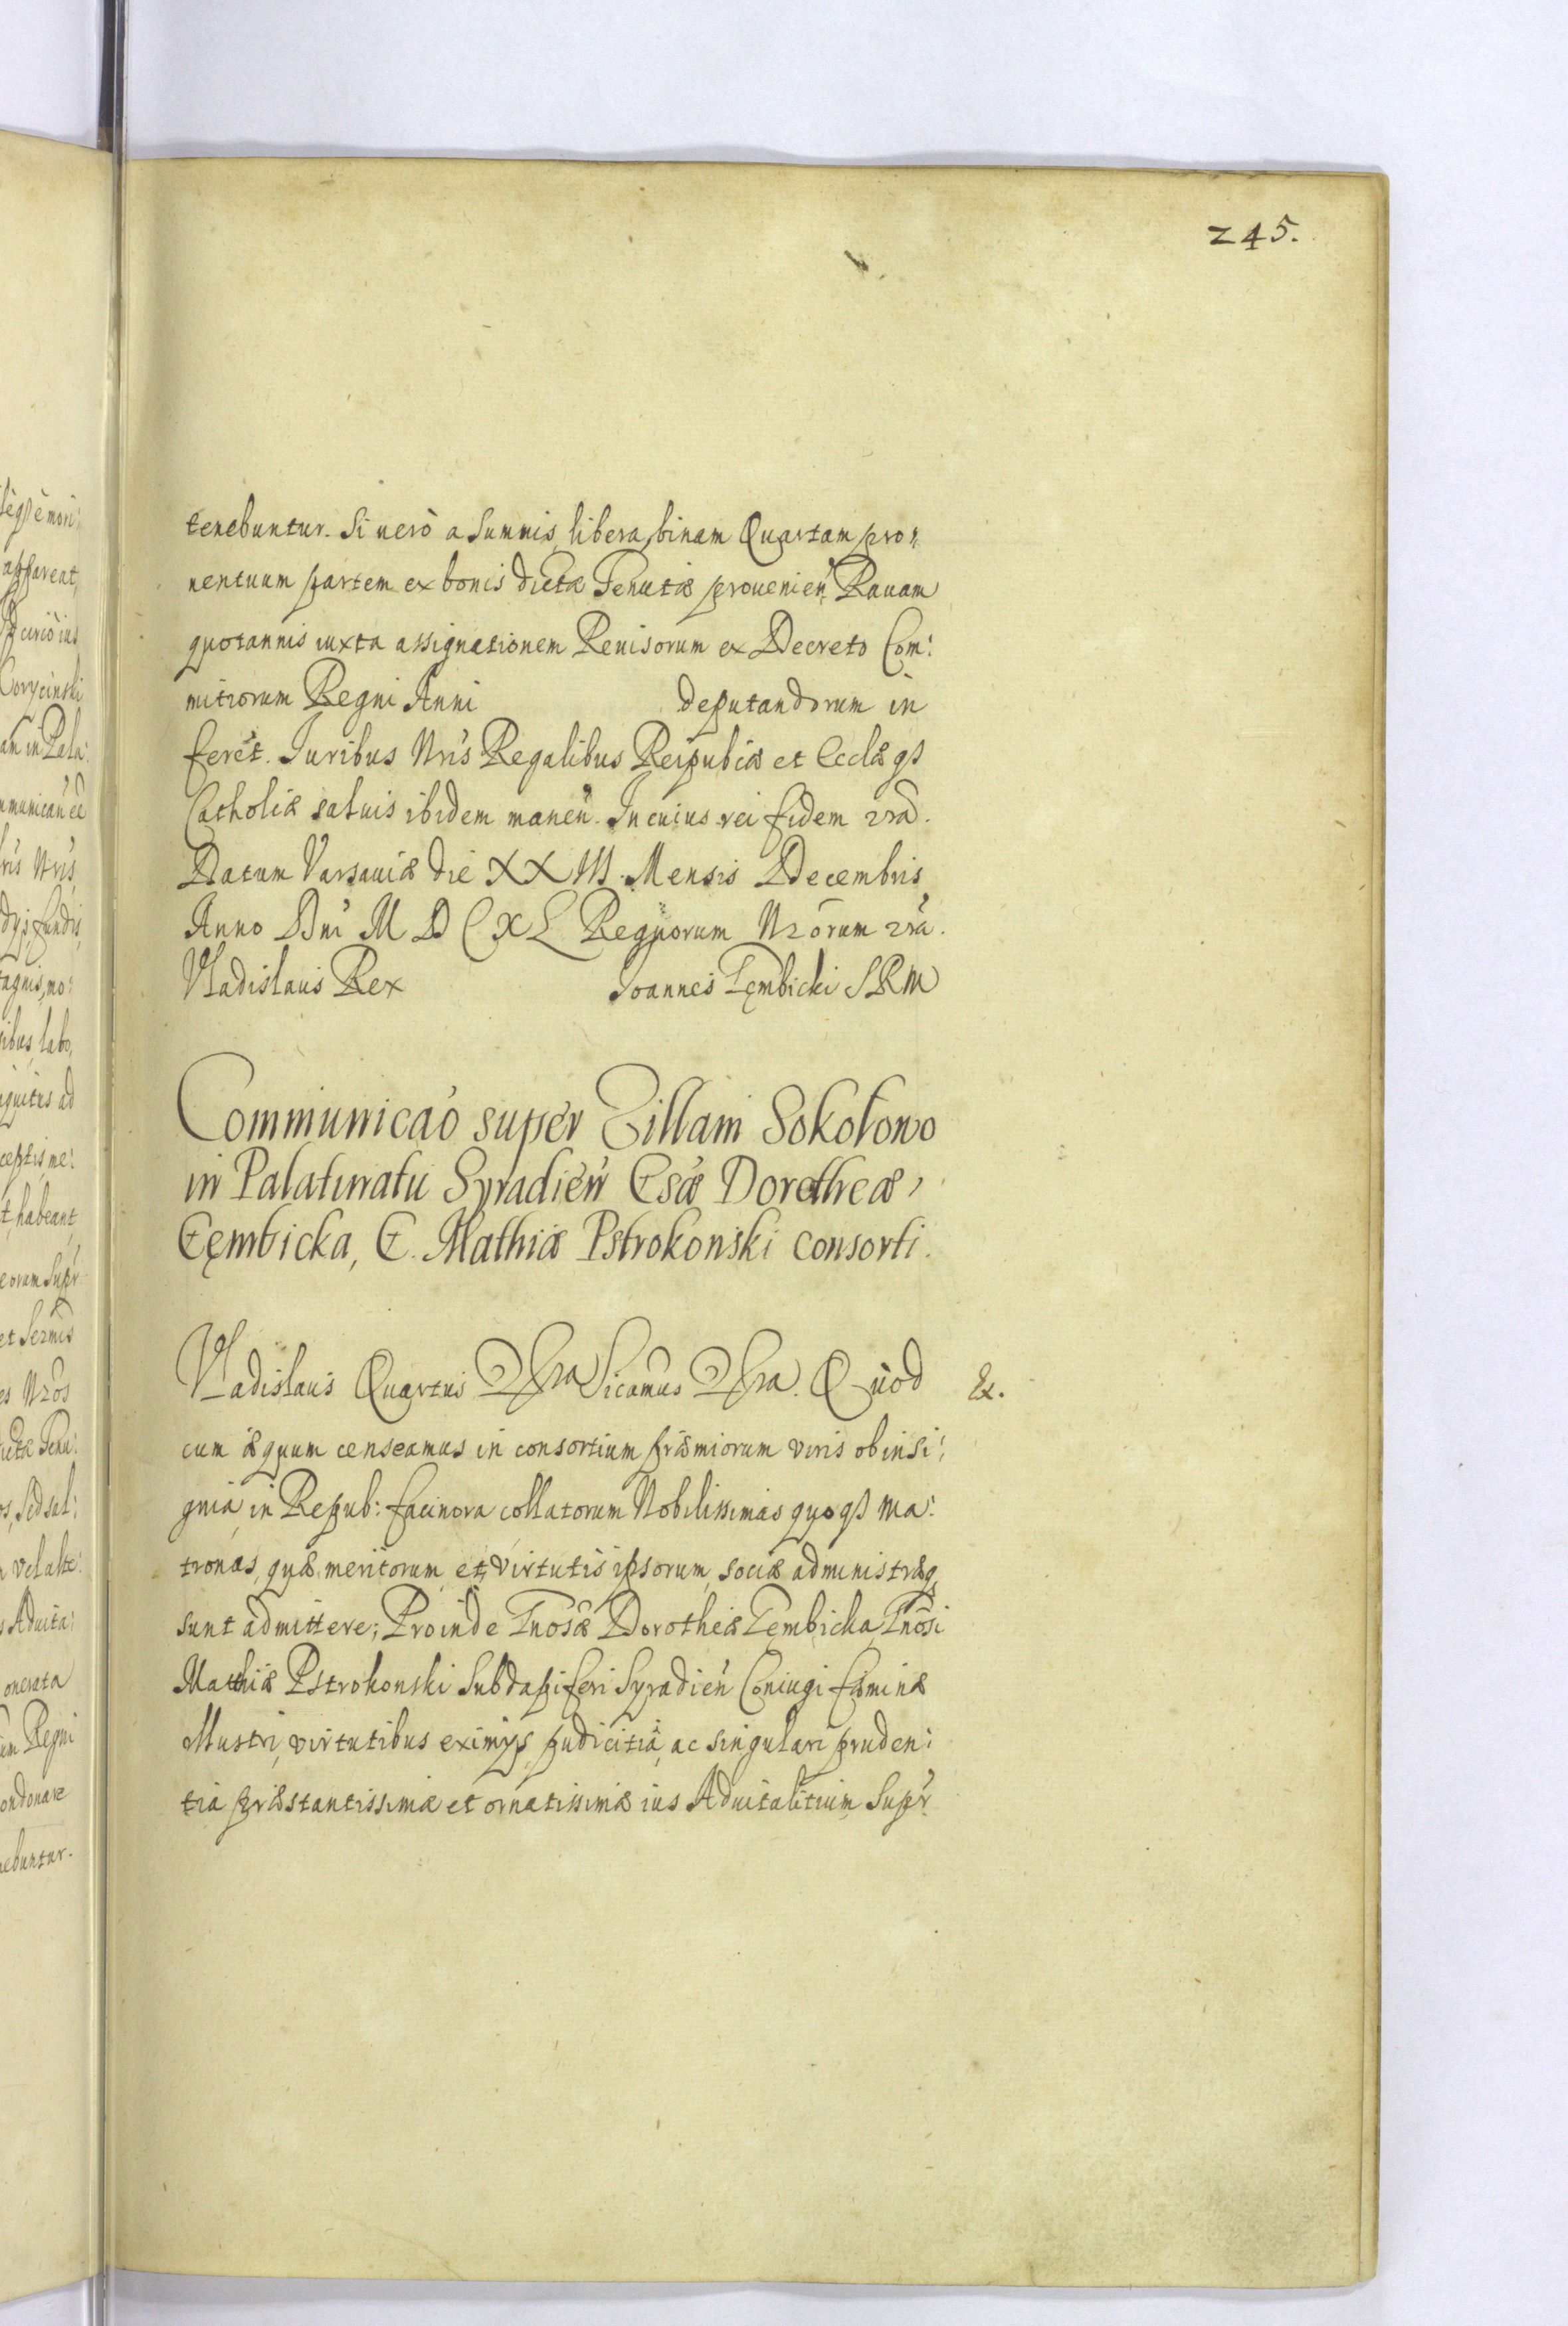 245.
tenebuntur. Si verò a summis libera, binam Quartam pro:
uentuum partem ex bonis dictæ Tenutæ prouenień Rauam
quotannis iuxta assignationem Reuisorum ex Decreto Com:
mitiorum Regni Anni deputandorum in
feret. Iuribus Nris Regalibus Reipubcæ et Ecclæqȝ
Catholiæ saluis ibidem maneń. In cuius rei fidem
Datum Varsauiæ die XXIII. Mensis Decembris
Anno Dni M D C X L Regnorum Nrorum
Vladislaus Rex Ioannes Łęmbicki SRM
Communicaó super Villam Sokołowo
in Palatinatu Syradień Gsæ Dorotheæ
Łęmbicka, G. Mathiæ Pstrokonski consorti.
Vladislaus Quartus Dhra Sicamus Dhra. Quod &.
cum æquum censeamus in consortium præmiorum viris ob insi:
gnia in Repub: facinora collatorum Nobilissimas quoqȝ ma:
tronas, quæ meritorum et virtutis ipsorum, sociæ administræqȝ
sunt admittere; Proinde Gnosæ Dorotheæ Łęmbicka, Gnosi
Mathiæ Pstrokonski Subdapiferi Syradień Coniugi fæminæ
Illustri, virtutibus eximijs, pudicitiâ, ac singulari pruden:
tia præstantissimæ et ornatissimæ ius Aduitalitium supr